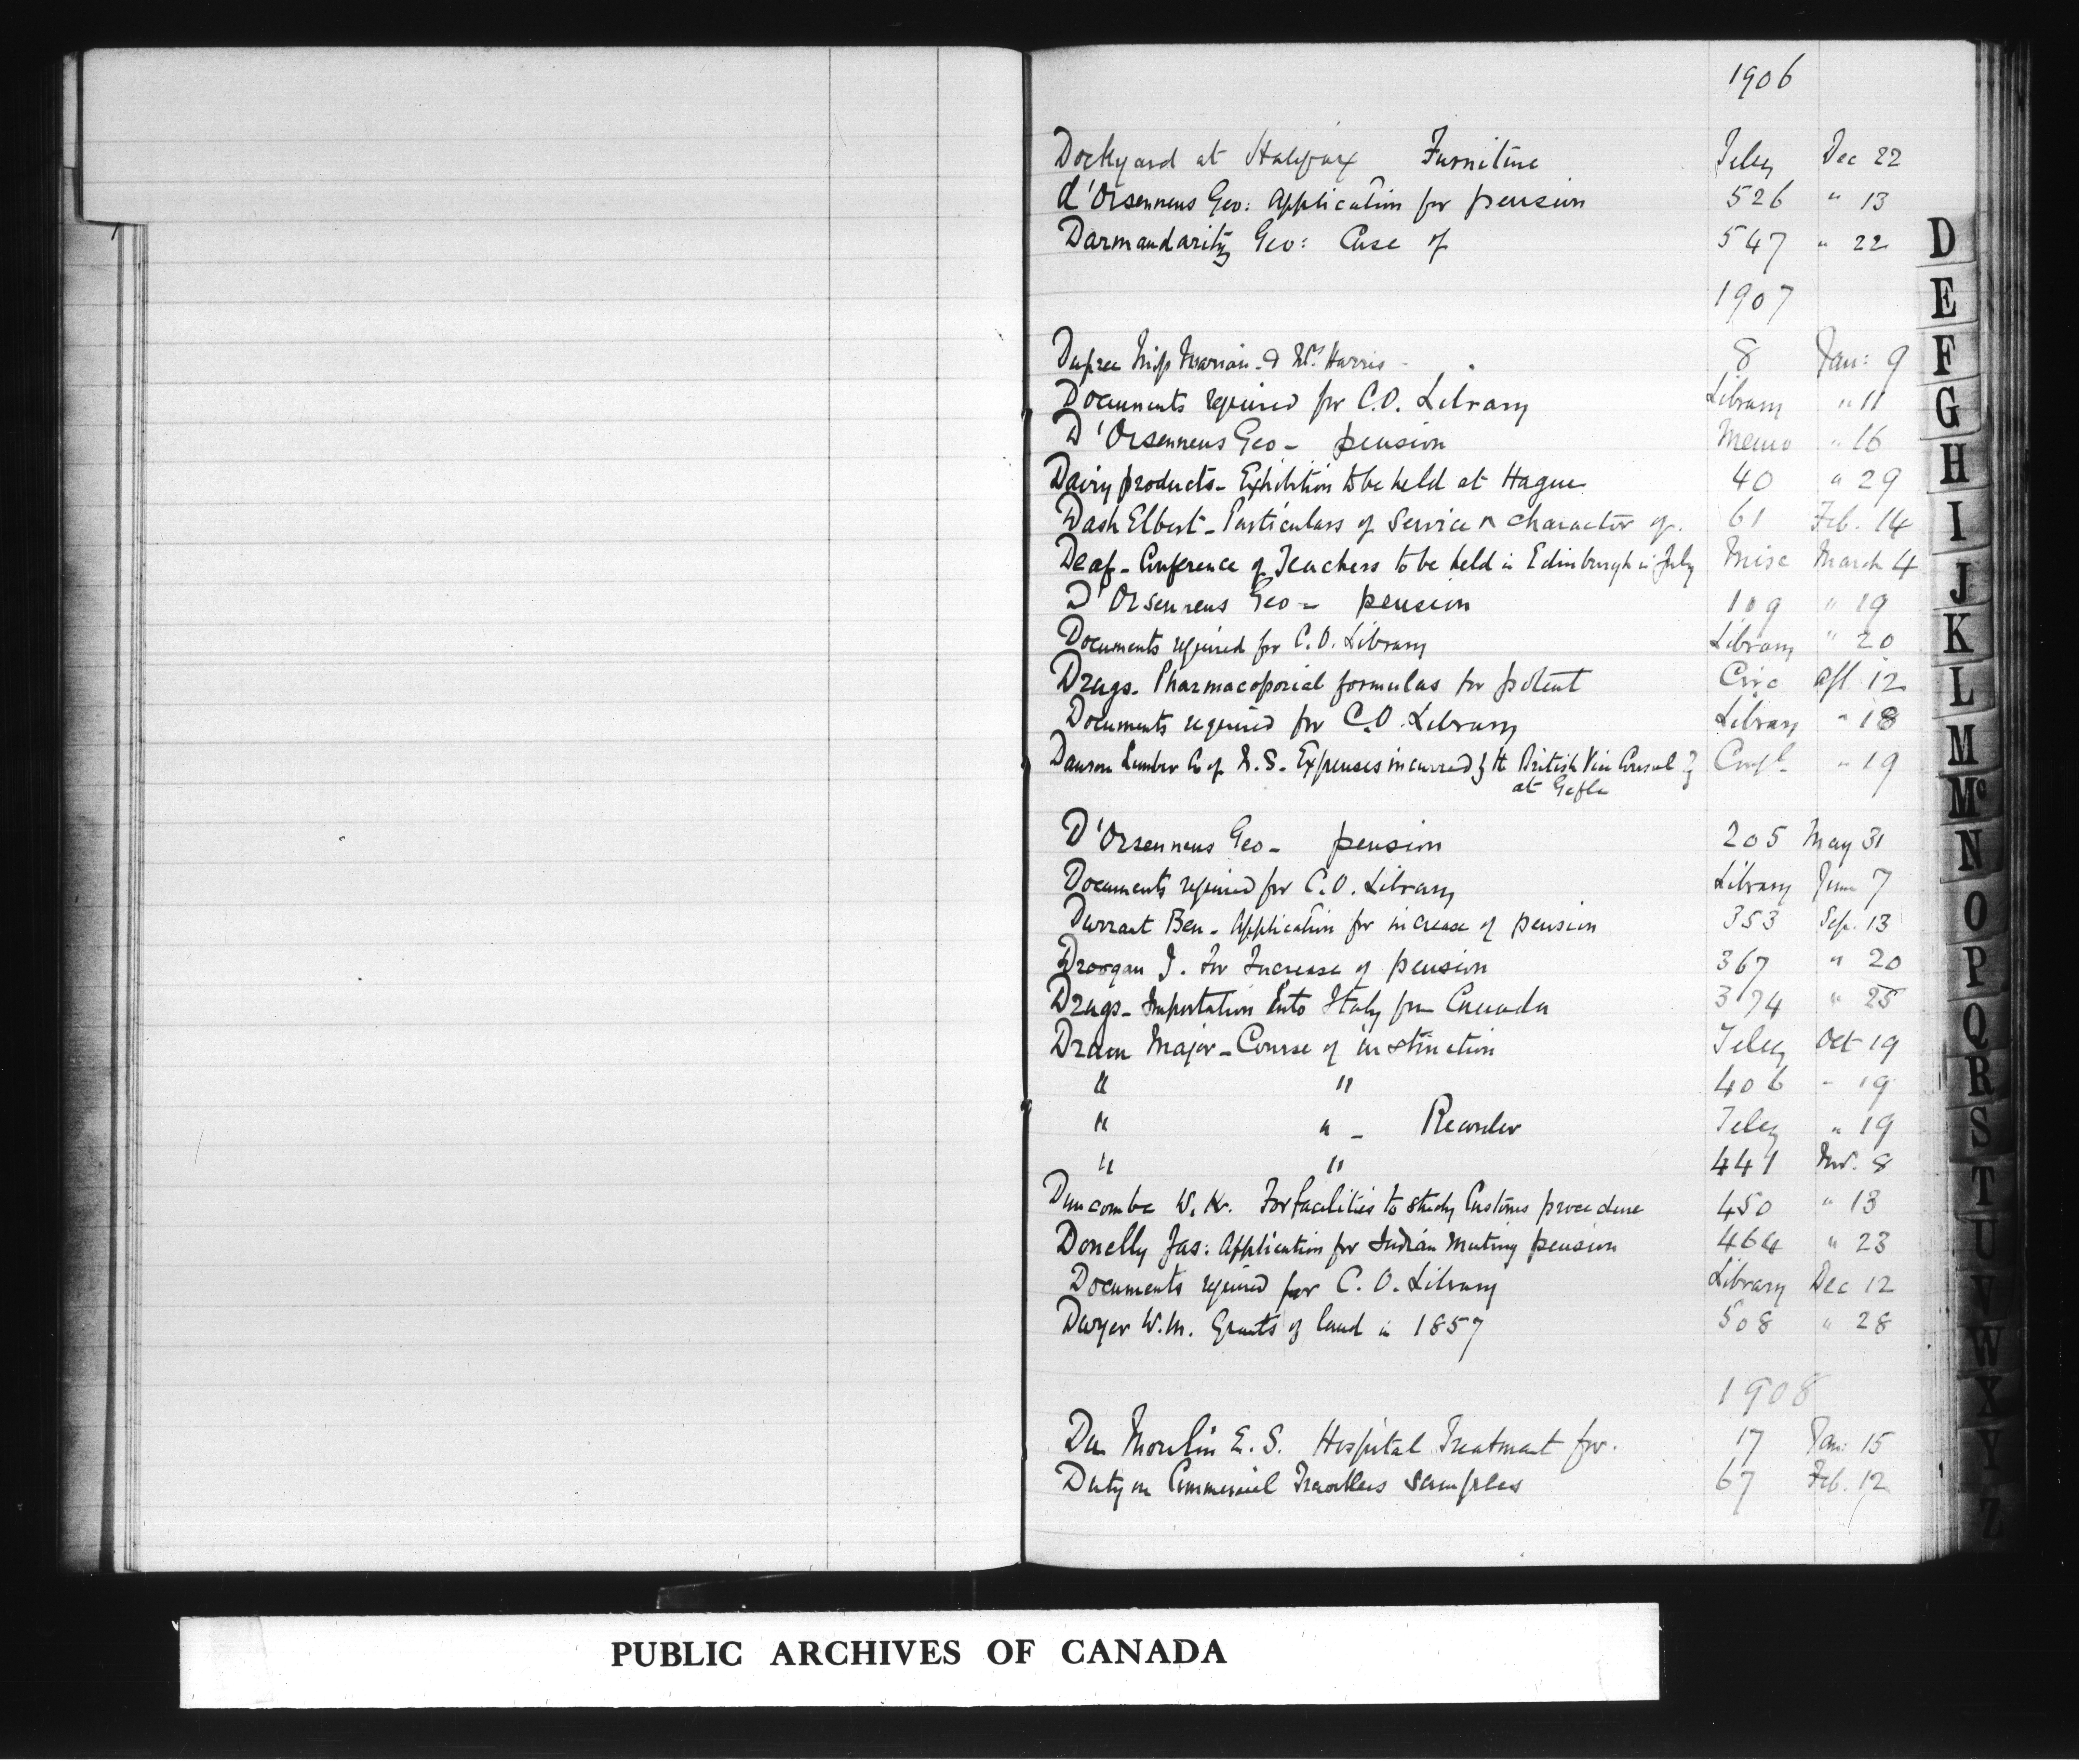 1906
Dockyard at Halifax Furniture Teleg Dec 22
d'Orsennens Geo: Application for pension 526 " 13
Darmandaritz Geo: Case of 547 " 22
1907
Dupree Miss Marian & Mrs Harris - 8 Jan: 9
Documents required for C.O. Library Library " 11
D'Orsennens Geo - pension Memo " 16
Dairy products - Exhibition to be held at Hague 40 " 29
Dash Elbert - Particulars of Service & character of. 61 Feb. 14
Deaf - Conference of Teachers to be held in Edinburgh in July Misc March 4
D'Orsennens Geo - pension 109 " 19
Documents required for C.O. Library Library " 20
Drugs - Pharmacoporial formulas for potent Circ Apl 12
Documents required for C.O. Library Library " 18
Dawson Lumber Co of N.S. - Expenses incurred by the British Vice Consul Confl. " 19
at Gefle
D'Orsennens Geo - pension 205 May 31
Documents required for C.O. Library Library June 7
Durrant Ben - Application for increase of pension 353 Sep. 13
Droogan J. for Increase of pension 367 " 20
Drugs - Importation into Italy from Canada 374 " 25
Drain Major - Course of instruction Teleg Oct 19
" " 406 - 19
" " - Recorder Teleg " 19
" " 441 Nov. 8
Duncombe W. K. For facilities to study Customs procedure 450 " 13
Donelly Jas: Application for Indian Mutiny pension 464 " 23
Documents required for C.O. Library Library Dec 12
Dwyer W.M. Grants of land in 1857 508 " 28
1908
Du Moulin E. S. Hospital Treatment for. 17 Jan: 15
Duty on Commercial Travellers samples 67 Feb. 12
D
E
F
G
H
I
J
K
L
M
Mc
N
O
P
Q
R
S
T
U
V
W
X
Y
Z
PUBLIC ARCHIVES OF CANADA